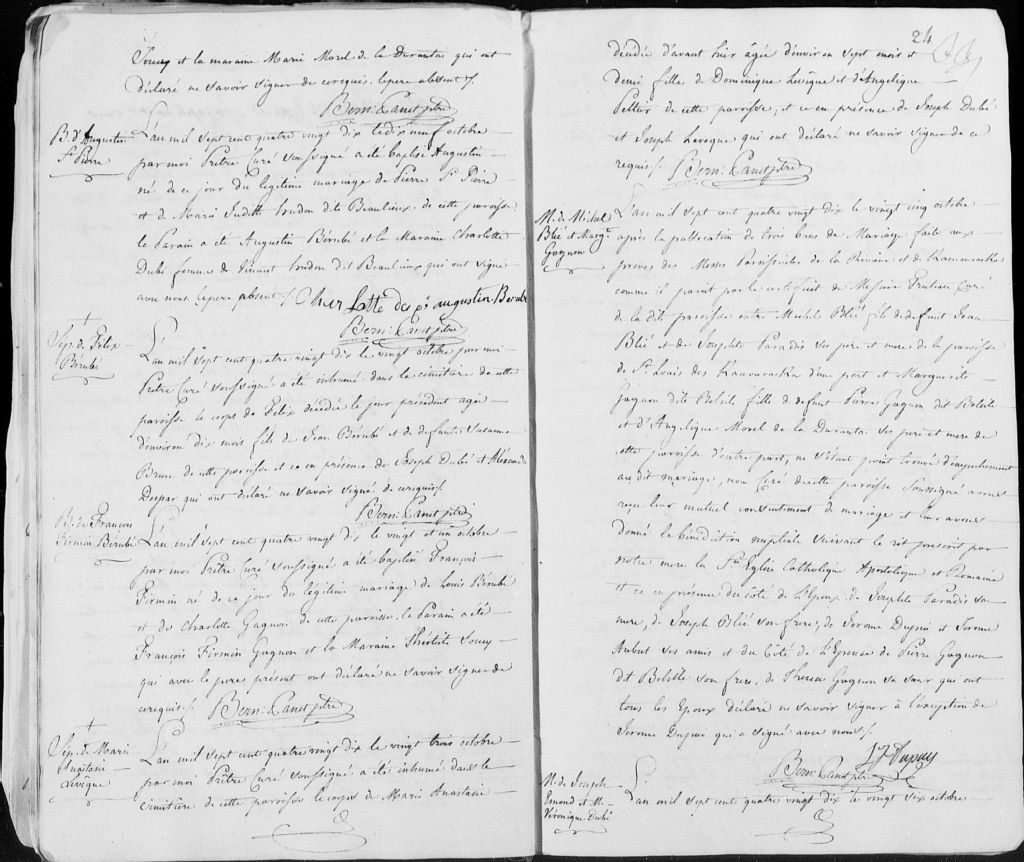 Soucy et la maraine Marie Morel de la Durantai qui ont
déclaré ne savoir signer de cerequis. lepere absent /.
Bern: Panet ptre
B. d'Augustin
St. Pierre
L'an mil sept cent quatre vingt dix le dix neuf octobre
par moi Prêtre Curé soussigné a été baptisé Augustin
né de ce jour du légitime mariage de Pierre St. Pierre
et de Marie Judith hudon dit Beaulieux de cette paroisse
le Parain a été Augustin Bérubé et la Maraine Charlotte
Dubé femme de Vincent hudon dit Beaulieux qui ont signé
avec nous. lepere absent /. Cher Lotte de pr augustin Berube
Bern: Panet ptre
Sep. de Felix
Bérubé
L'an mil sept cent quatre vingt dix le vingt octobre par moi
Prêtre Curé soussigné a été inhumé dans le cimétiere de cette
paroisse le corps de Felix décédée le jour précédent agée
d'environ dix mois fils de Jean Bérubé et de defunte Susanne
Brun de cette paroisse et ce en présence de Joseph Dubé et Alexandre
Despar qui ont déclaré ne savoir signé de cerequis /.
Bern: Panet ptre
B. de François
Firmin Bérubé
L'an mil sept cent quatre vingt dix le vingt et un octobre
par moi Prêtre Curé soussigné a été baptisé François
Firmin né de ce jour du légitime mariage de Louis Bérubé
et de Charlotte Gagnon de cette paroisse. le Parain a été
François Firmin Gagnon et la Maraine Théotiste Soucy
qui avec le pere présent ont déclaré ne savoir signer de
cerequis /. Bern: Panet ptre
Sep. de Marie
Anastasie
Levêque
L'an mil sept cent quatre vingt dix le vingt trois octobre
par moi Prêtre Curé soussigné a été inhumé dans le
cimétiere de cette paroisse le corps de Marie Anastasie
24
décédée d'avant hier âgée d'environ sept mois et
demi fille de Dominique Levêque et d'Angelique
Peltier de cette paroisse, et ce en présence de Joseph Dubé
et Joseph Levêque qui ont déclaré ne savoir signer de ce
requis /. Bern: Panet ptre
M. de Michel
Blié et Margte.
Gagnon
L'an mil sept cent quatre vingt dix le vingt cinq octobre
après la publication de trois bans de Mariage faite aux
prones des Messes Paroissiales de la Riviere et de Kamouraska
comme il paroit par le certificat de Messire Trutau Curé
de la dite paroisse entre Michel Blié fils de defunt Jean
Blié et de Josephte Paradis ses pere et mere de la paroisse
de St. Louis des Kamouraska d'une part et Marguerite
Gagnon dite Belisle fille de defunt Pierre Gagnon dit Belisle
et d'Angelique Morel de la Durantai ses pere et mere de
cette paroisse d'autre part, ne s'étant point trouvé d'empechement
au dit mariage, nous Curé de cette paroisse soussigné avons
reçu leur mutuel consentement de mariage et leur avons
donné la bénédiction nuptiale suivant le rit prescrit par
notre mere la Ste. Eglise Catholique Apostolique et Romaine
et ce en présence du côté de L'Epoux de Josephte Paradis sa
mere, de Joseph Blié son frere, de Jerome Dupui et Jerome
Aubut ses amis et du Côté de L'Epouse de Pierre Gagnon
dit Belisle son frere, de Therese Gagnon sa sœur qui ont
tous les Epoux déclaré ne savoir signer à l'exception de
Jerome Dupui qui a signé avec nous /.
J Dupuy
Bern: Panet ptre
M. de Joseph
Emond et M.
Véronique Dubé
L'an mil sept cent quatre vingt dix le vingt six octobre